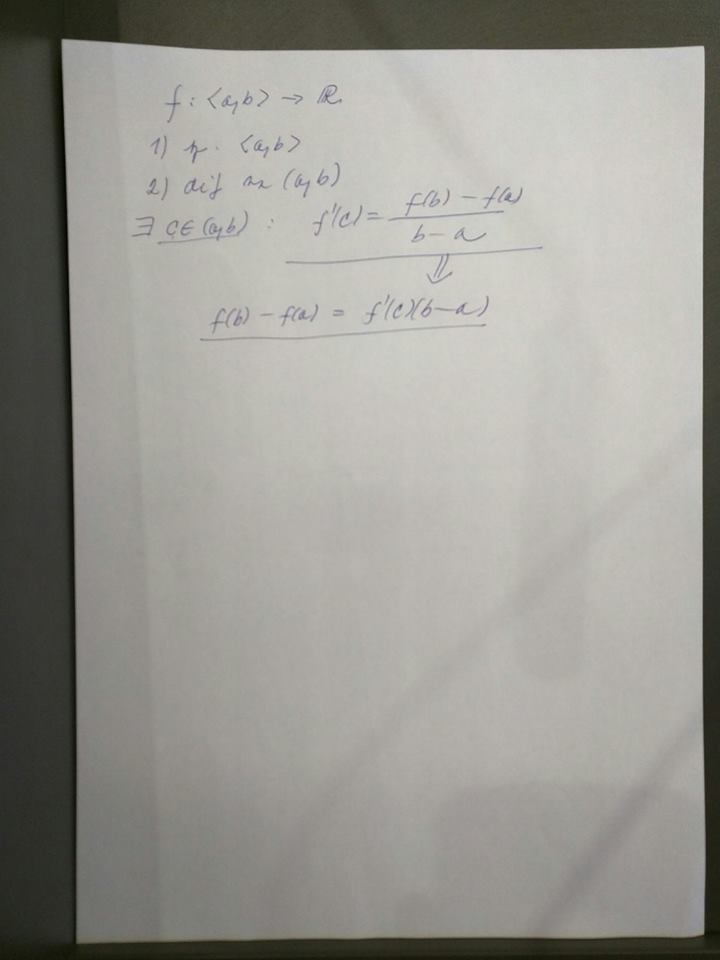 f : <a,b> → R
1) n. <a,b>
2) dif na (a,b)
∃ c∈(a,b) : f'(c) = f(b) - f(a) / b - a
⇓
f(b) - f(a) = f'(c)(b-a)